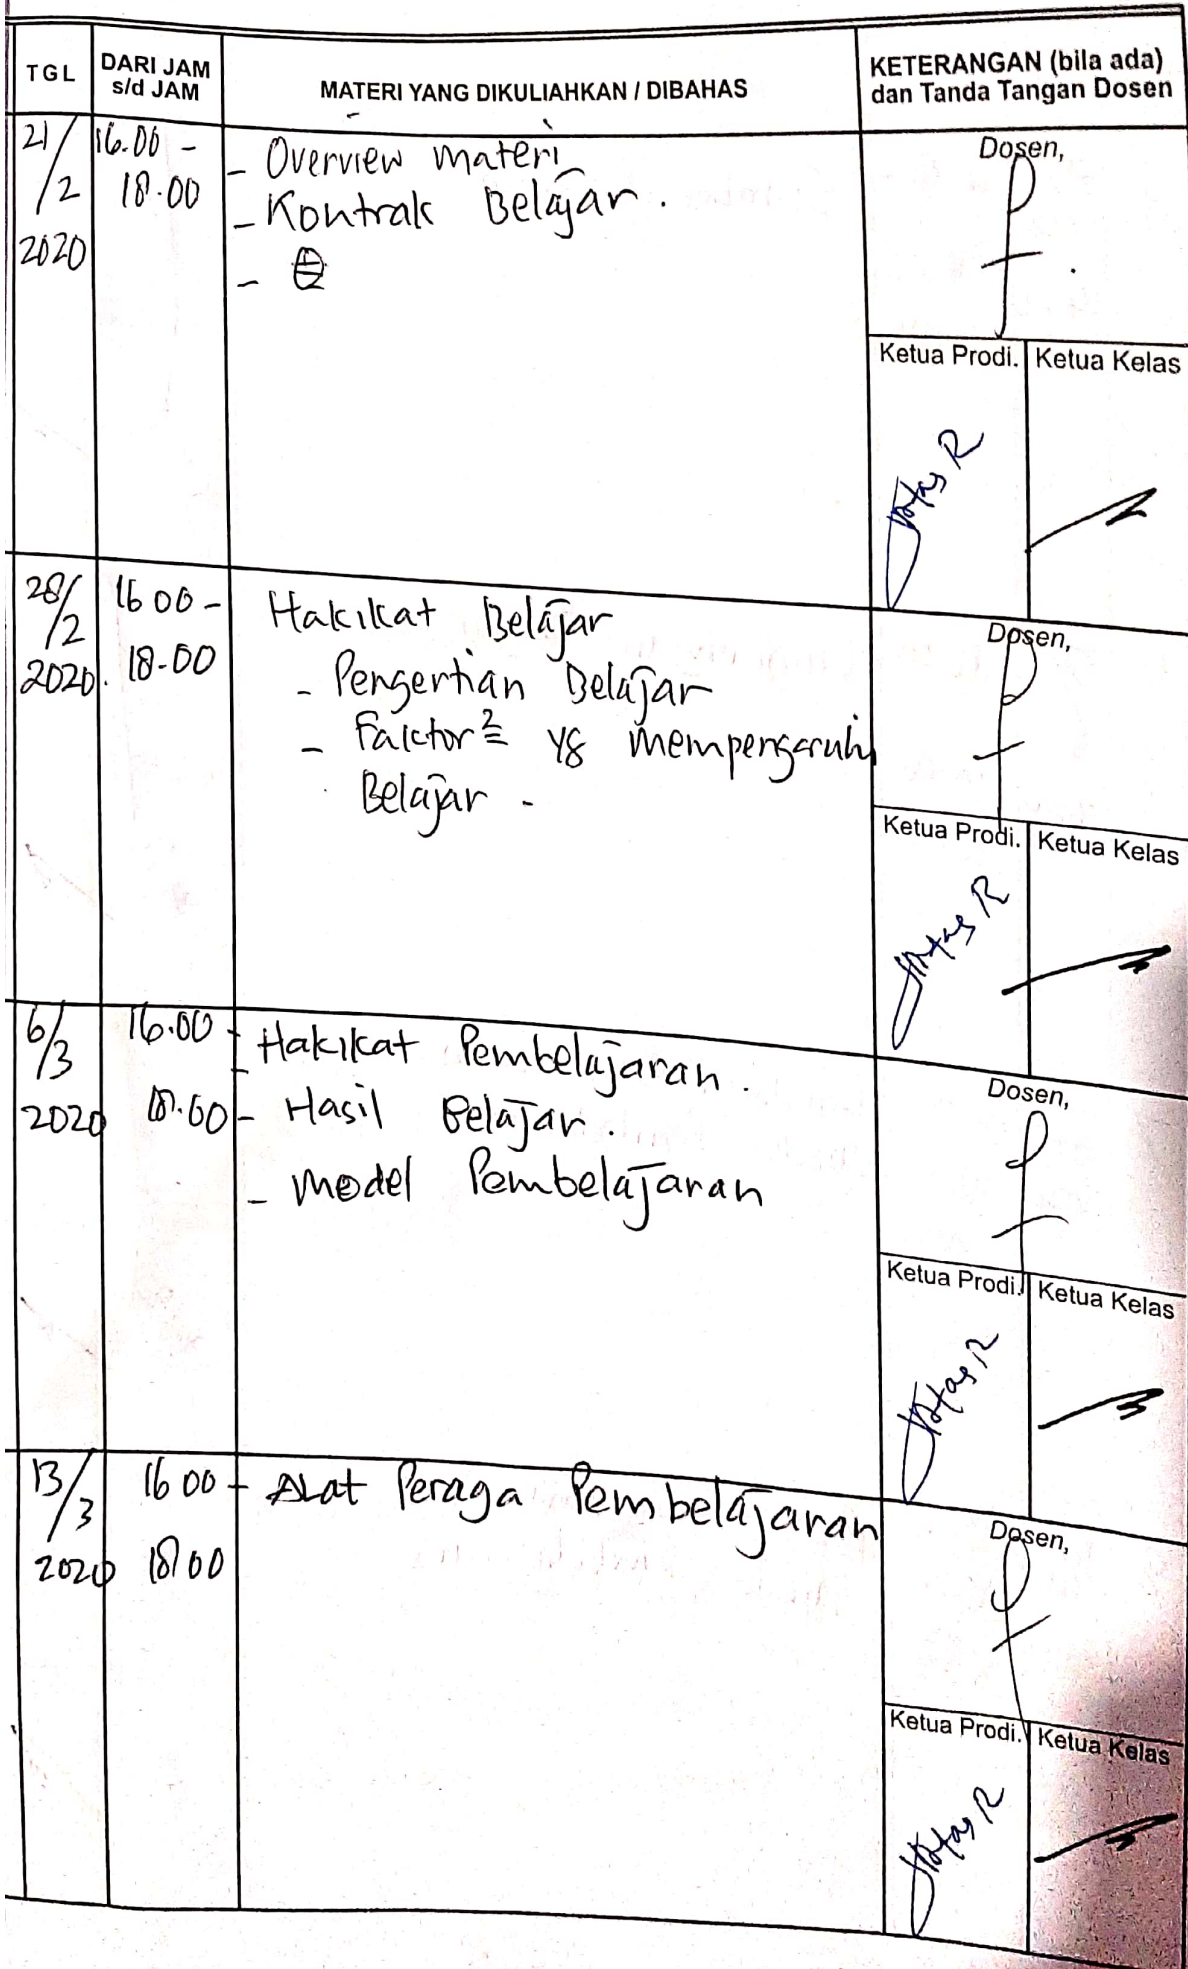 TGL
DARI JAM
s/d JAM
MATERI YANG DIKULIAHKAN / DIBAHAS
KETERANGAN (bila ada)
dan Tanda Tangan Dosen
21/2
2020
16.00 -
18.00
- Overview materi
- Kontrak Belajar.
-
Dosen,
Ketua Prodi.
Ketua Kelas
28/2
2020.
16 00 -
18-00
Hakikat Belajar
- Pengertian Belajar
- Faktor2 yg mempengaruhi
Belajar -
Dosen,
Ketua Prodi.
Ketua Kelas
6/3
2020
16.00 -
18.00
- Hakikat Pembelajaran.
- Hasil Belajar.
- Model Pembelajaran
Dosen,
Ketua Prodi.
Ketua Kelas
13/3
2020
16 00 -
18 00
Alat Peraga Pembelajaran
Dosen,
Ketua Prodi.
Ketua Kelas